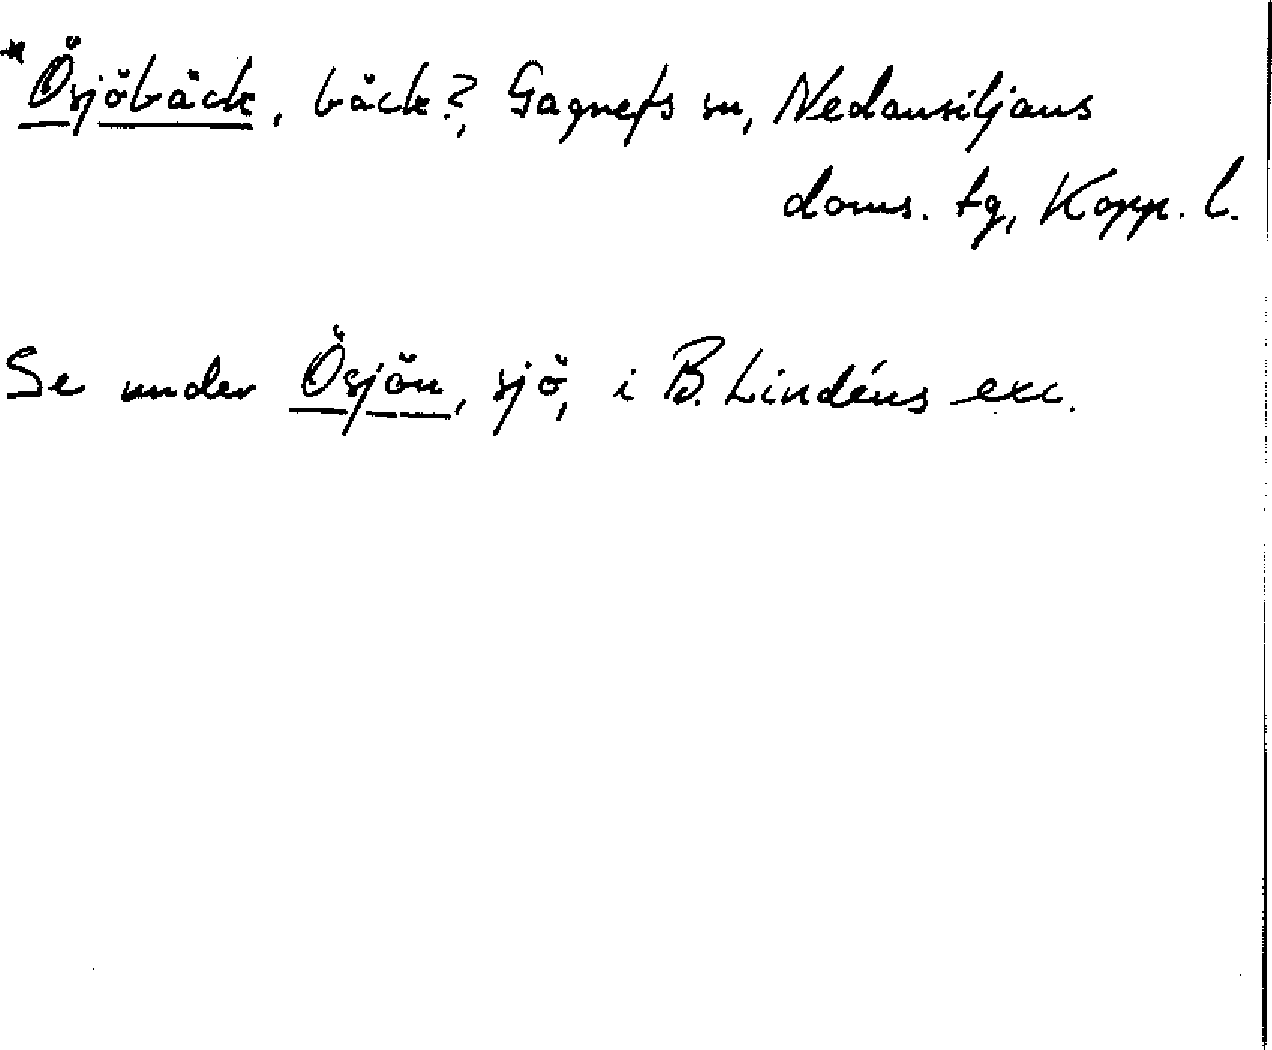 *Ösjöbäck, bäck?, Gagnefs sn, Nedansiljans
doms. tg, Kopp. l.
Se under Ösjön, sjö, i B. Lindéns exc.